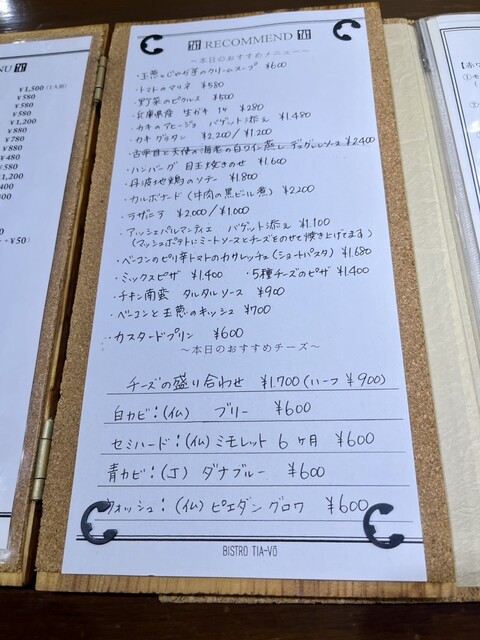 RECOMMEND
〜本日のおすすめメニュー〜
・玉葱とじゃが芋のクリームスープ ¥600
・トマトのマリネ ¥580
・野菜のピクルス ¥500
・兵庫県産 生ガキ 1ヶ ¥280
・カキのアヒージョ バゲット添え ¥1,480
・カキグラタン ¥2,200/¥1,200
・ハンバーグ 目玉焼きのせ ¥1,600
・丹波地鶏のソテー ¥1,800
・カルボナード(牛肉の黒ビール煮) ¥2,200
・ラザニア ¥2,000/¥1,000
・アッシェパルマンティエ バゲット添え ¥1,100
(マッシュポテトにミートソースとチーズをのせて焼き上げてます)
・ベーコンのピリ辛トマトのカサレッチェ(ショートパスタ) ¥1,680
・ミックスピザ ¥1,400 ・5種チーズのピザ ¥1,400
・チキン南蛮 タルタルソース ¥900
・ベーコンと玉葱のキッシュ ¥700
・カスタードプリン ¥600
〜本日のおすすめチーズ〜
チーズの盛り合わせ ¥1,700(ハーフ ¥900)
白カビ:(仏) ブリー ¥600
セミハード:(仏)ミモレット 6ヶ月 ¥600
青カビ:(J) ダナブルー ¥600
ウォッシュ:(仏)ピエダングロワ ¥600
BISTRO TIA-VŌ
NU
¥1,500(1人前)
¥580
¥580
¥580
¥1,200
¥880
¥780
¥880
¥480
¥580